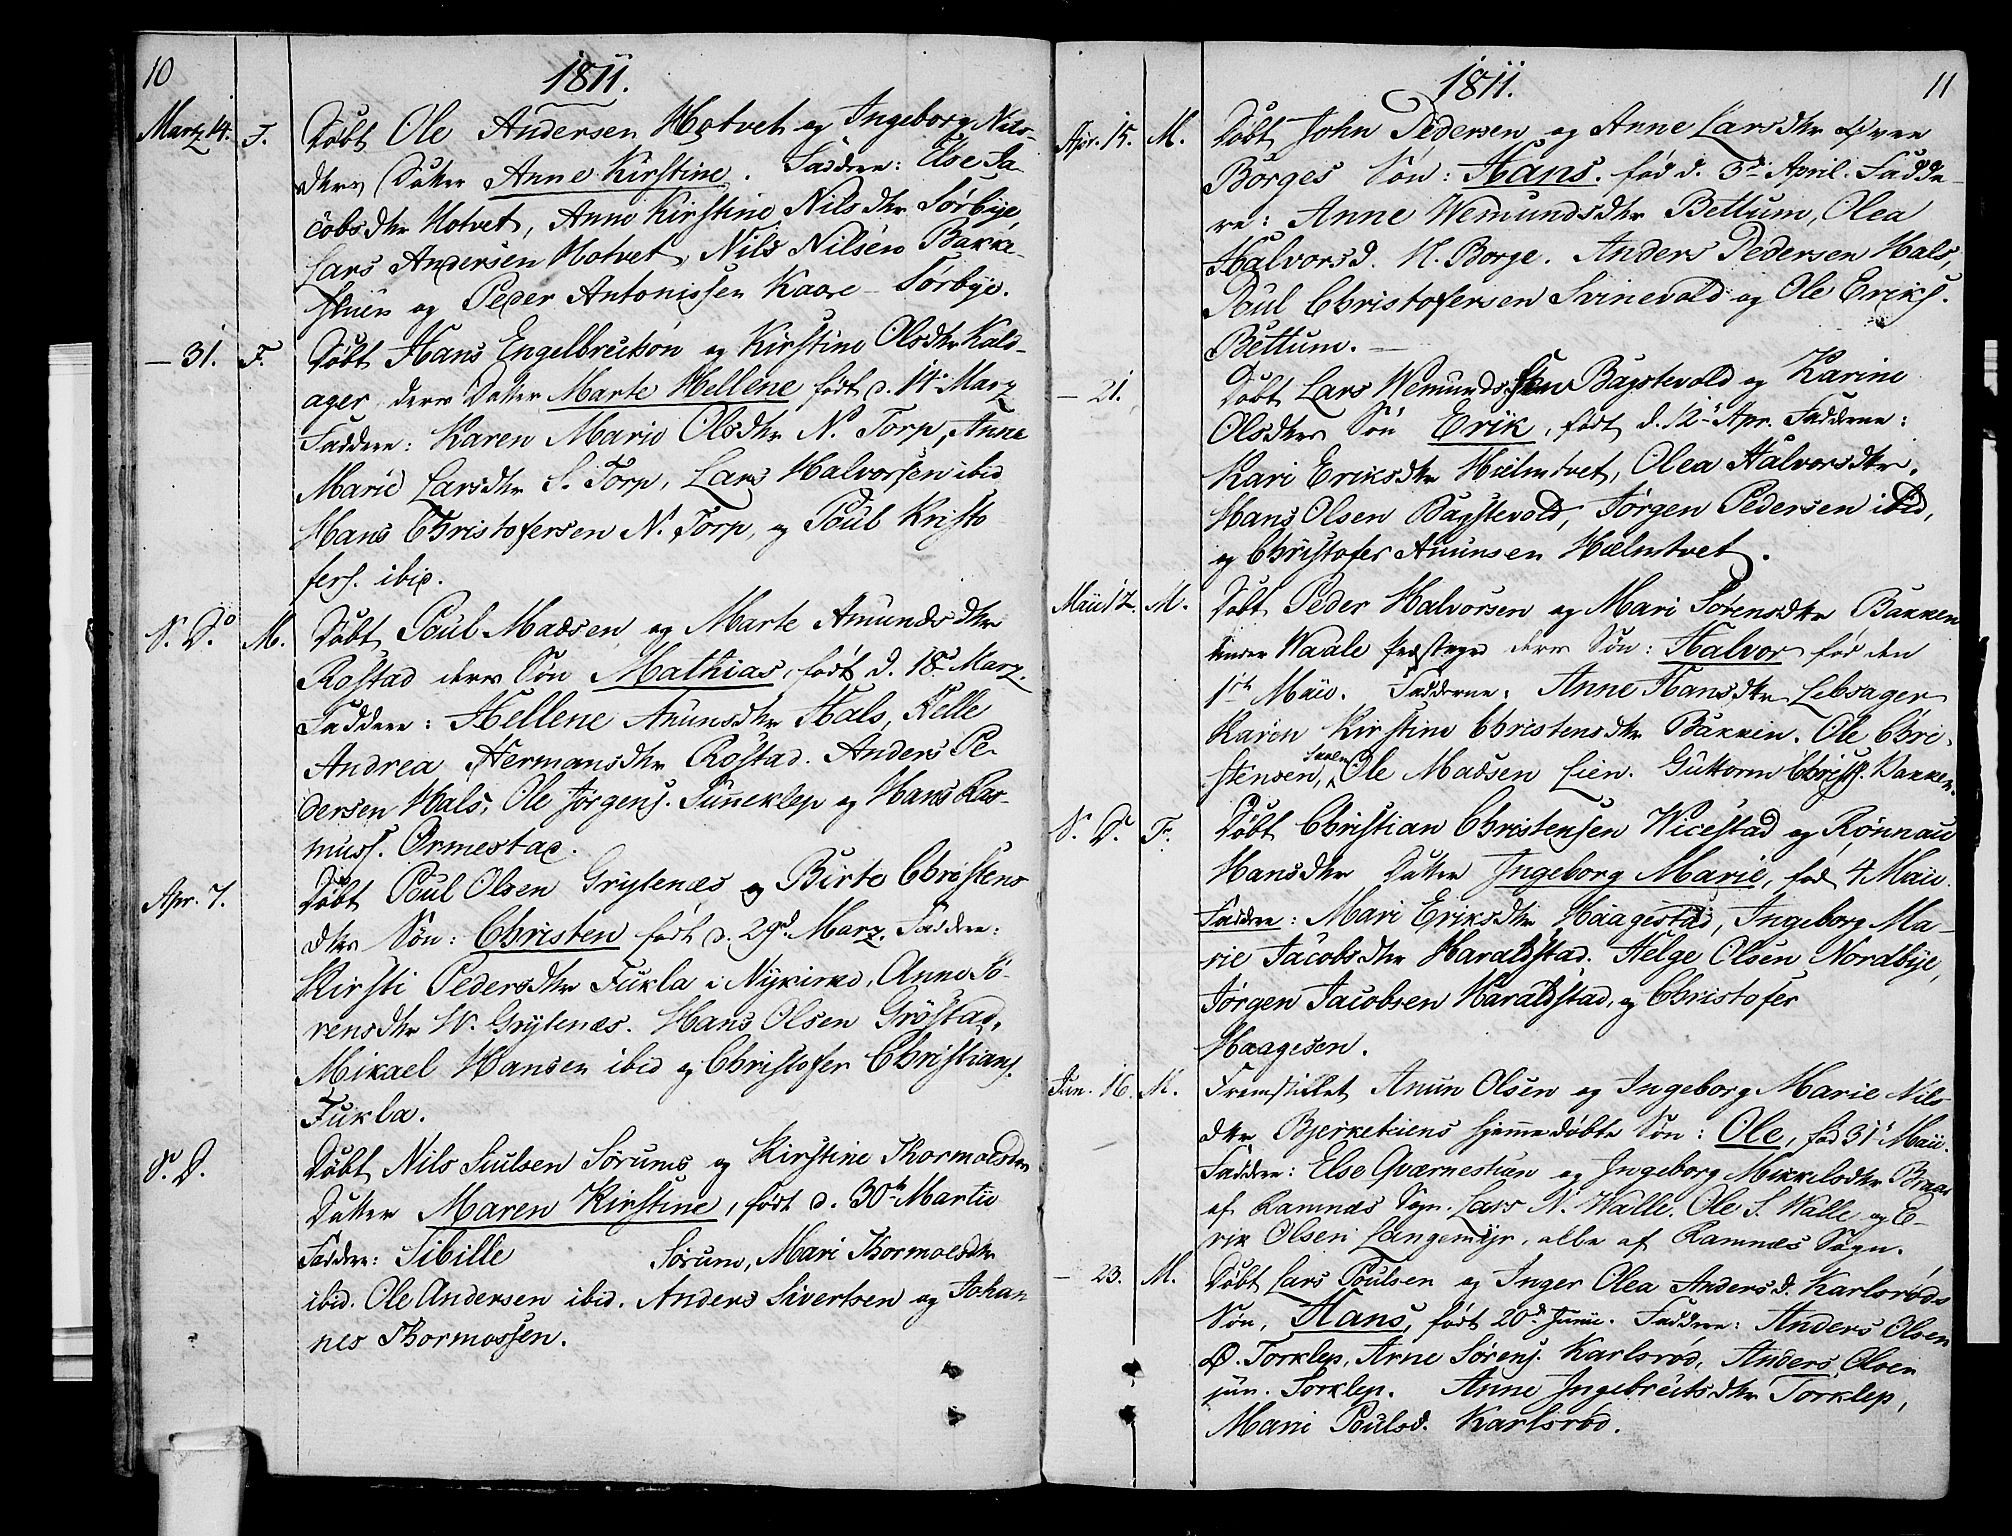 10
1811.
Martz 14. F. Døbt Ole Andersen Hotvet og Ingeborg Nils-
dtrs Datter Anne Kirstine. Faddere: Else Ja-
cobsdtr Hotvet, Anne Kirstine Nilsdtr Sørbÿe,
Lars Andersen Hotvet, Nils Nilsen Bakke-
og Peder Antonissen Kaare - Sørbye.
- 31. F. Døbt Hans Engelbretsøn og Kirstine Olsdtr Kals-
ager deres Datter Marte Hellene født d. 14 Marz
Faddere: Karen Marie Olsdtr N. Torp, Anne
Marie Larsdtr S. Torp, Lars Halvorsen ibid
Hans Christofersen N. Torp, og Poul Kristo
fers. ibid.
S. D. M. Døbt Poul Madsen og Marte Amundsdtr
Rostad deres Søn Mathias, født d. 18 Marz.
Faddere: Hellene Anunsdtr Hals, Helle
Andrea Hermansdtr Rostad. Anders Pe-
dersen Hals, Ole Jørgens. Sunneklep og Hans Ras-
muss. Ormestad.
Apr. 7. Døbt Poul Olsen Grytenæs og Birte Christens
dtrs Søn: Christen født d. 29d Marz. Faddere:
Kirsti Pedersdtr Fukla i Nykirke, Anne Sø-
rensdtr W. Grytenæs. Hans Olsen Grøstad,
Mikael Hansen ibid og Christofer Christians.
Fukla.
S. D. Døbt Nils Siulsen Sørums og Kirstine Thormodsdtr
Datter Maren Kirstine, født d. 30te Martii
Faddere: Sibille Sørum, Mari Thormodsdtr
ibid. Ole Andersen ibid. Anders Sivertsen og Johan
nes Thormossen.
11
1811.
Apr. 15. M. Døbt John Pedersen og Anne Larsdtr Øvre
Borges Søn: Hans. fød d. 3d April. Fadde-
re: Anne Wemundsdtr Bettum, Olea
Halvorsd. N. Borge. Anders Pedersen Hals,
Poul Christofersen Svinevold og Ole Eriks.
Bettum.
- 21. Døbt Lars Wemundssen Bagstevold og Karine
Olsdtrs Søn Erik, født d. 12 Apr. Fadderne:
Kari Eriksdtr Hielmtvet, Olea Halvorsdtr,
Hans Olsen Bagstevold, Jørgen Pedersen ibid,
og Christofer Anunsen Hielmtvet.
Maii 12. M. Døbt Peder Halvorsen og Mari Sørensdtr Bakken
under Waale deres Søn: Halvor fød den
1ste Maii. Fadderne: Anne Hansdtr Lebsager
Karen Kirstine Christensdtr Bakken. Ole Chri-
stensen, Ole Madsen Lien. Guttorm Christ. Bakken.
S. D. F. Døbt Christian Christensen Wicestad og Rønnau
Hansdtr Datter Ingeborg Marie, fød 4 Maii.
Faddere: Mari Eriksdtr Haagestad, Ingeborg Ma-
rie Jacobsdtr Haraldstad. Helge Olsen Nordbÿe,
Jørgen Jacobsen Haraldstad, og Christofer
Haagesen.
Jun. 16. M. Fremstillet Anun Olsen og Ingeborg Marie Nils
dtr Bjerketeiens hjemmedøbte Søn: Ole, fød 31 Maii.
Faddere: Else Qværnestuen og Ingeborg Mikkelsdtr Braar
af Ramnæs Sogn. Lars N. Walle. Ole S. Walle og E-
rik Olsen Langemÿr, alle af Ramnæs Sogn.
- 23. M. Døbt Lars Poulsen og Inger Olea Andersd. Karlsrøds
Søn, Hans, født 20d Junii. Faddere: Anders Olsen
Ø. Torklep, Arne Sørens. Karlsrød, Anders Olsen
jun. Torklep. Anne Ingebretsdtr Torklep,
Mari Poulsd. Karlsrød.